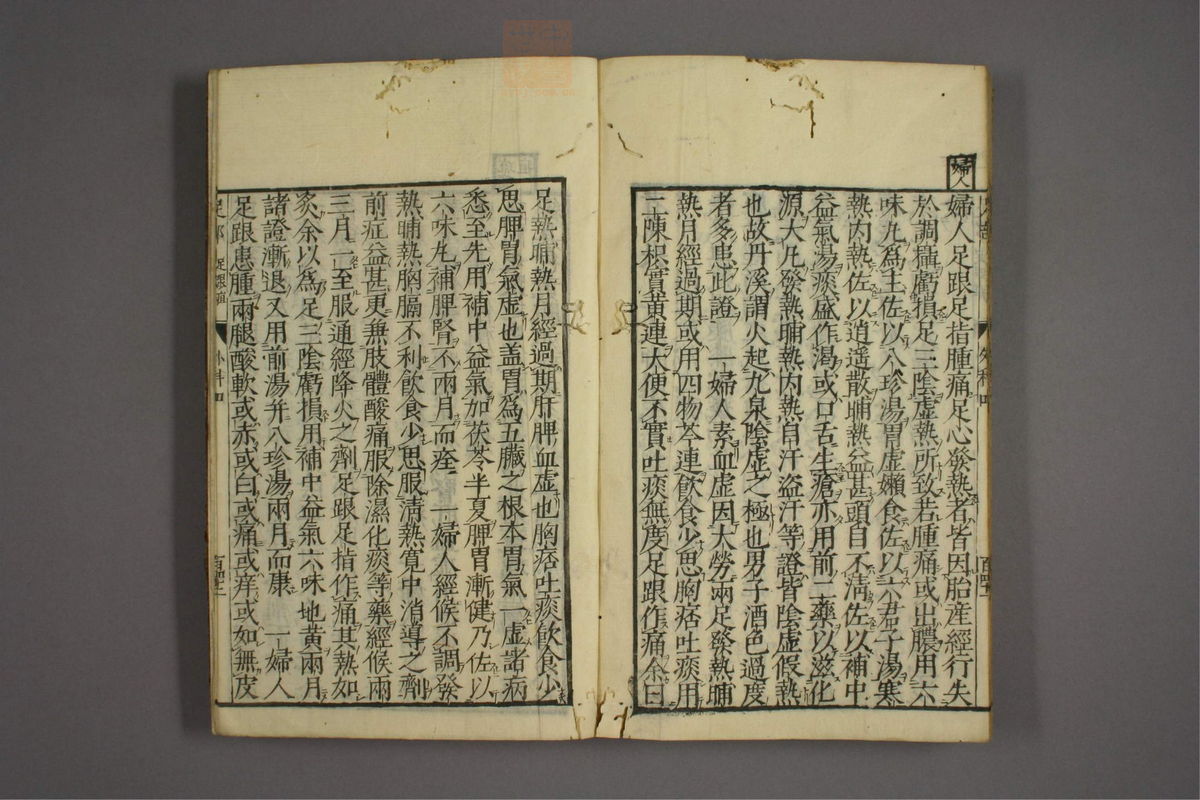 婦人
婦人足跟足指腫痛足心發熱者皆因胎産經行失
於調攝虧損足三陰虛熱所致若腫痛或出膿用六
味丸爲主佐以八珍湯胃虛懶食佐以六君子湯寒
熱内熱佐以逍遥散晡熱益甚頭目不清佐以補中
益氣湯痰盛作渴或口舌生瘡亦用前二藥以滋化
源大凡發熱晡熱内熱自汗盗汗等證皆陰虛假熱
也故丹溪謂火起九泉陰虛之極也男子酒色過度
者多患此證　一婦人素血虛因大勞兩足發熱晡
熱月經過期或用四物芩連飲食少思胸痞吐痰用
二陳枳實黄連大便不實吐痰無度足跟作痛余曰
足熱晡熱月經過期肝脾血虛也胸痞吐痰飲食少
思脾胃氣虛也盖胃爲五臟之根本胃氣一虛諸病
悉至先用補中益氣加茯苓半夏脾胃漸健乃佐以
六味丸補脾腎不兩月而痊　一婦人經候不調發
熱晡熱胸膈不利飲食少思服清熱寛中消導之劑
前症益甚更兼肢體酸痛服除濕化痰等藥經候兩
三月一至服通經降火之劑足跟足指作痛其熱如
炙余以爲足三陰虧損用補中益氣六味地黄兩月
諸證漸退又用前湯并八珍湯兩月而康　一婦人
足跟患腫兩腿酸軟或赤或白或痛或痒或如無皮
足部　足跟疽　外科四